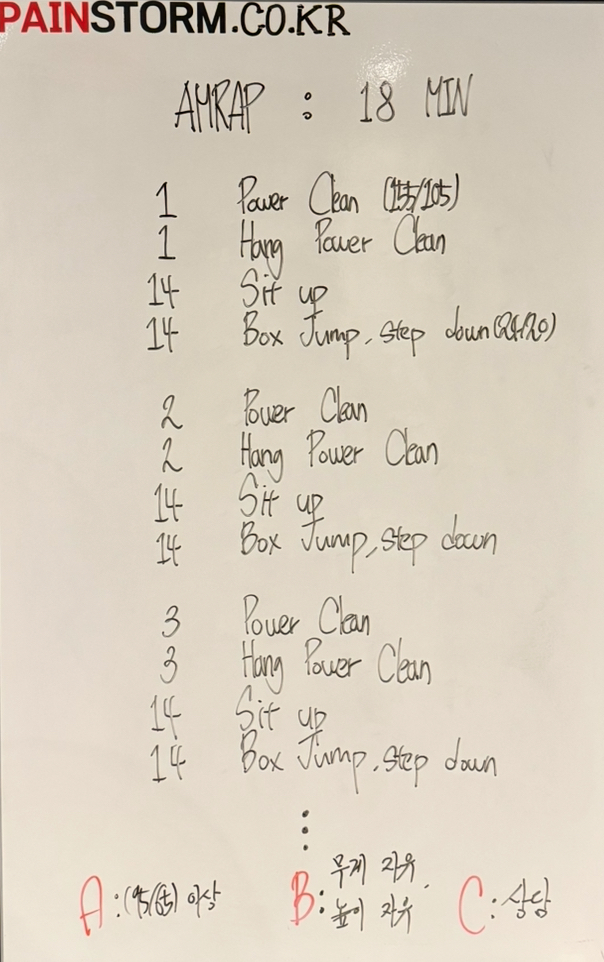 PAINSTORM.CO.KR
AMRAP : 18 MIN
1 Power Clean (155/105)
1 Hang Power Clean
14 Sit up
14 Box Jump, Step down (24/20)
2 Power Clean
2 Hang Power Clean
14 Sit up
14 Box Jump, Step down
3 Power Clean
3 Hang Power Clean
14 Sit up
14 Box Jump, Step down
⋮
A: (95/65) 이상
B: 무게 자유,
높이 자유
C: 상담